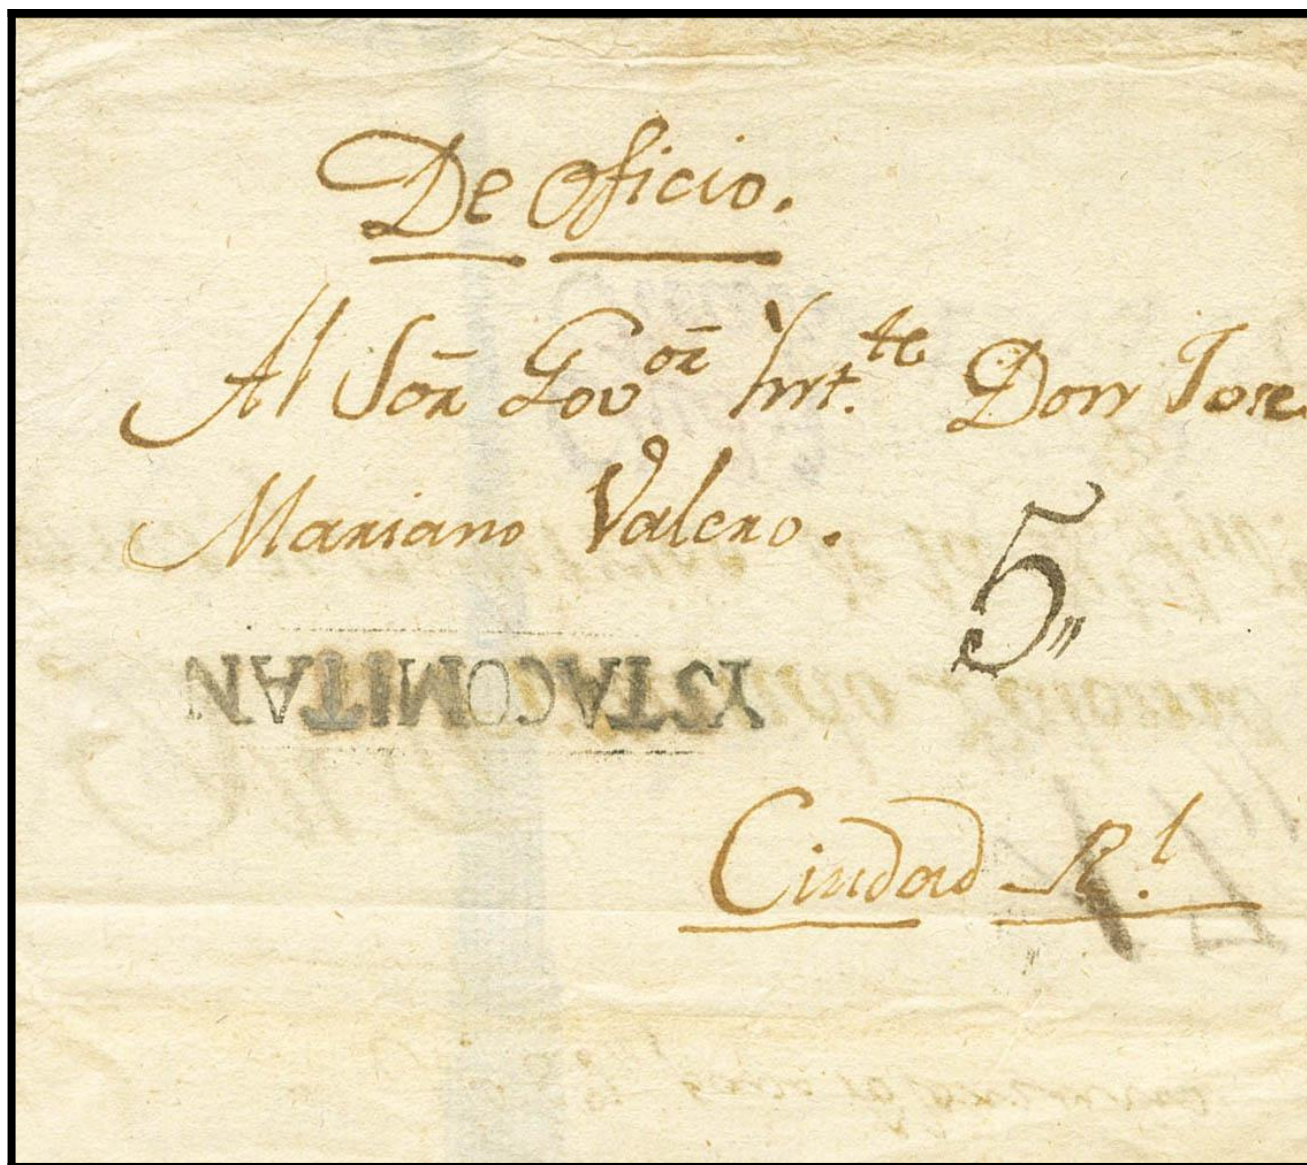 De Oficio.
Al Sor̄ Govor̄ Ynt.te Don Jose
Mariano Valero.
5"
YSTACOMITAN
Ciudad R.l